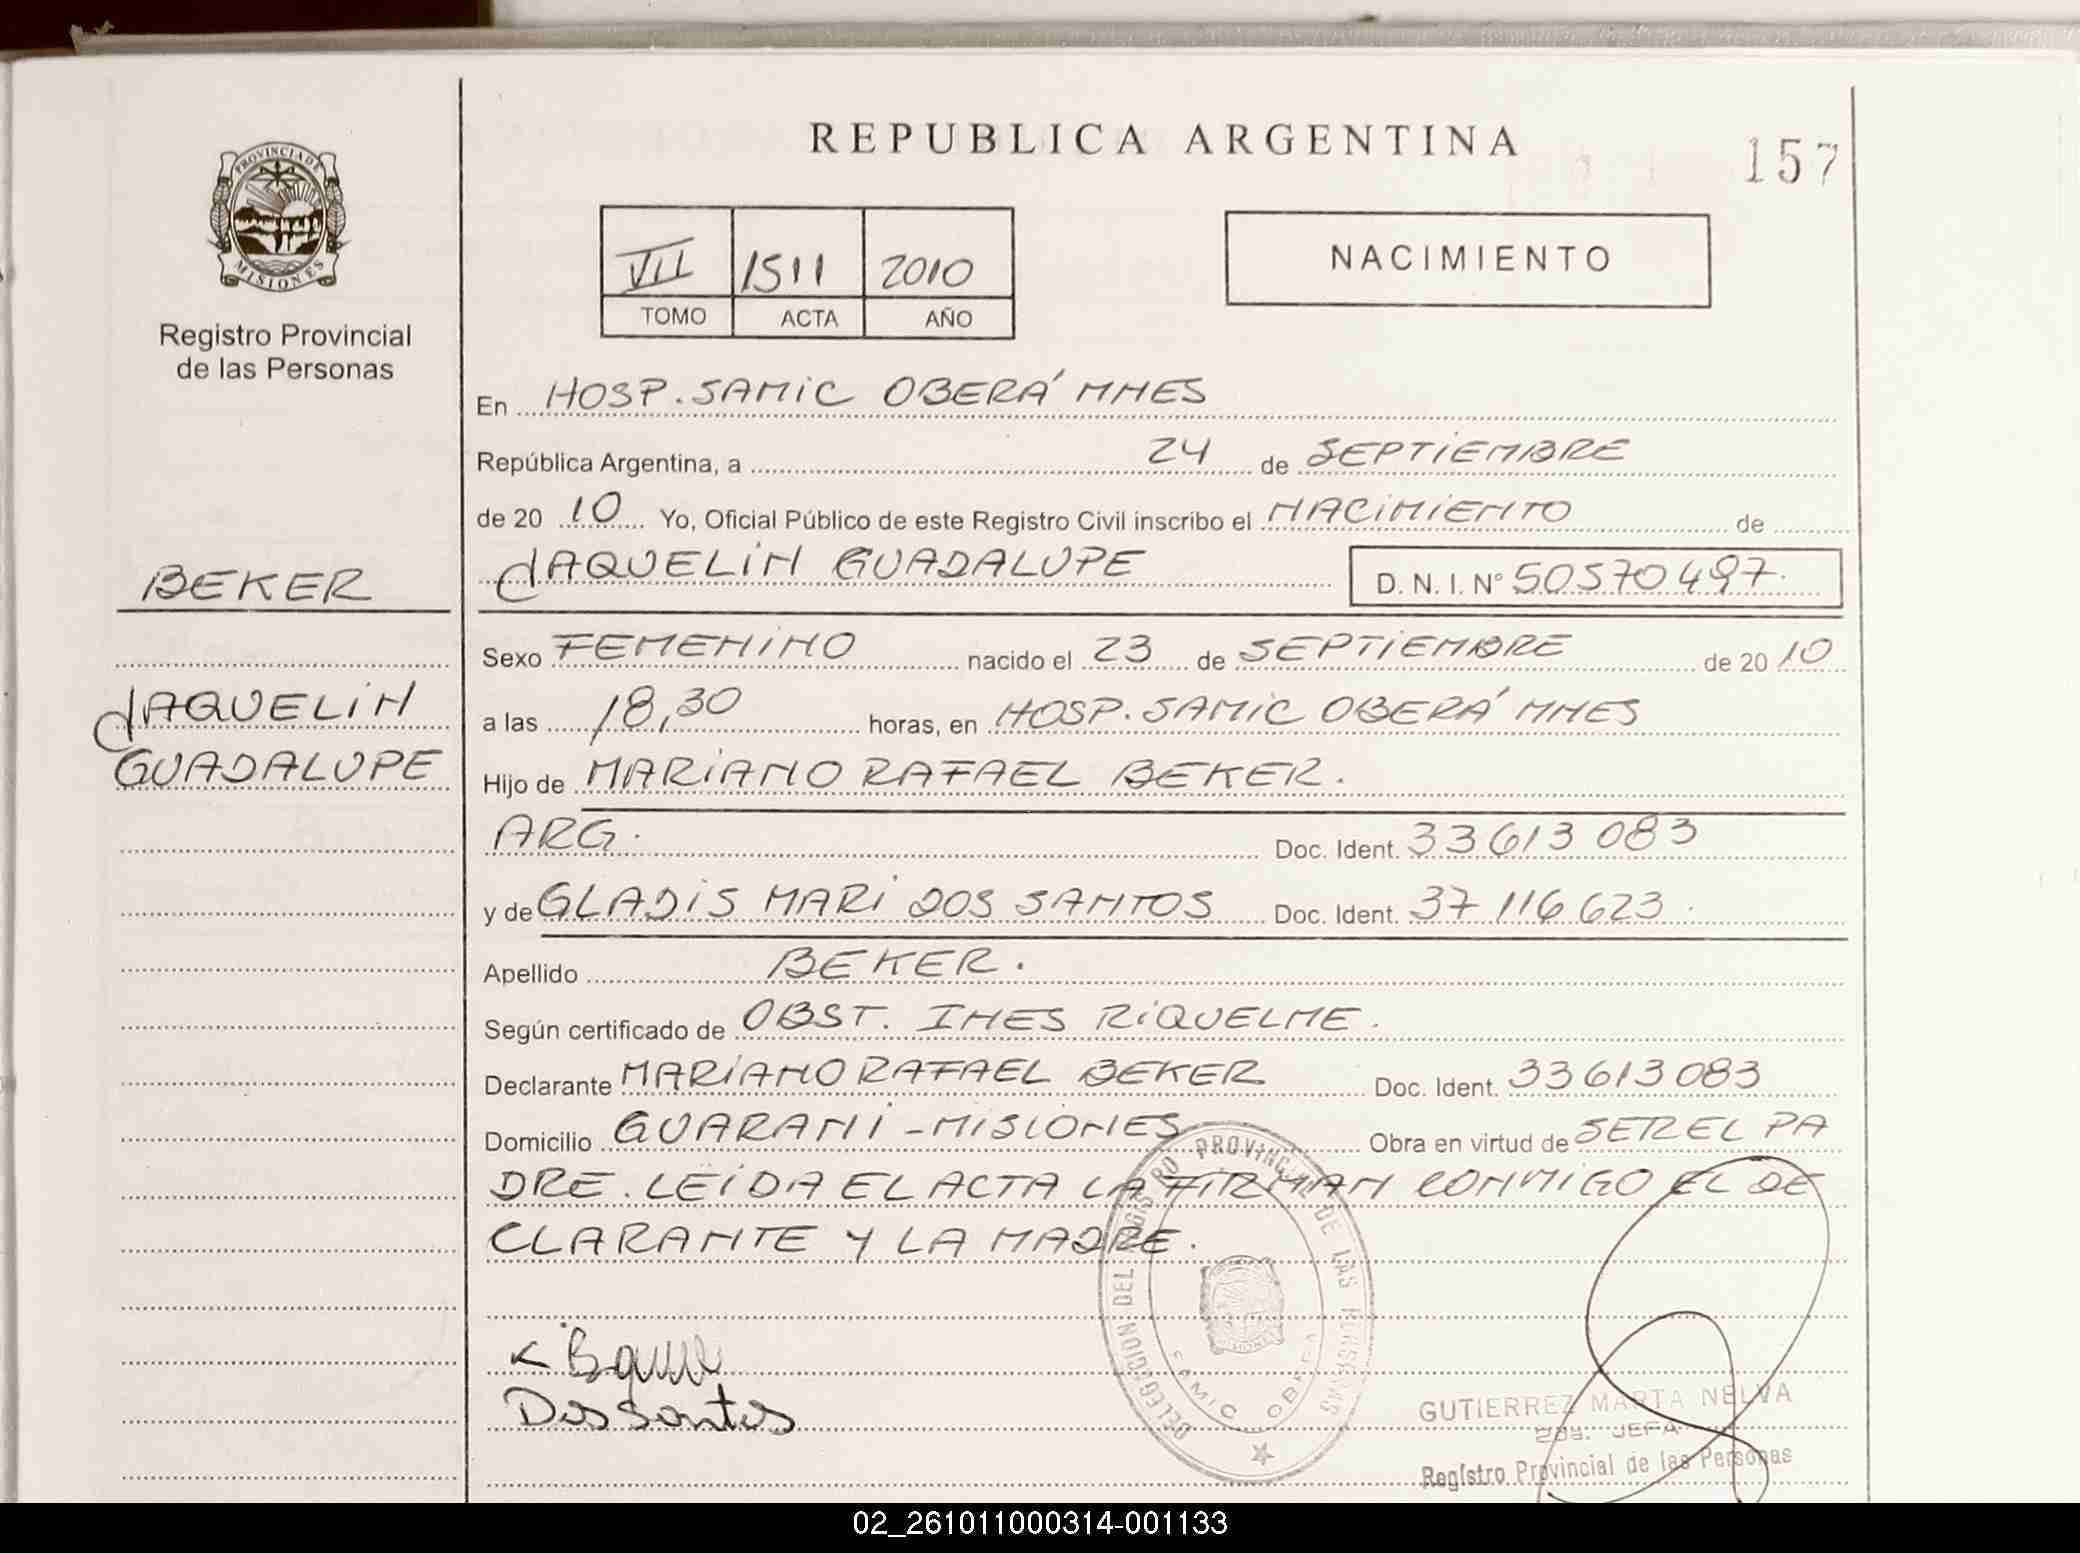 REPUBLICA ARGENTINA
157
PROVINCIA DE
MISIONES
Registro Provincial
de las Personas
VII 1511 2010
TOMO ACTA AÑO
NACIMIENTO
En HOSP. SAMIC OBERÁ MNES
República Argentina, a 24 de SEPTIEMBRE
de 20 10 Yo, Oficial Público de este Registro Civil inscribo el NACIMIENTO de
JAQUELIN GUADALUPE D. N. I. N° 50570497.
BEKER
JAQUELIN
GUADALUPE
Sexo FEMENINO nacido el 23 de SEPTIEMBRE de 20 10
a las 18,30 horas, en HOSP. SAMIC OBERÁ MNES
Hijo de MARIANO RAFAEL BEKER.
ARG. Doc. Ident. 33613083
y de GLADIS MARI DOS SANTOS Doc. Ident. 37116623.
Apellido BEKER.
Según certificado de OBST. INES RIQUELME.
Declarante MARIANO RAFAEL BEKER Doc. Ident. 33613083
Domicilio GUARANI - MISIONES Obra en virtud de SER EL PA
DRE. LEIDA EL ACTA LA FIRMAN CONMIGO EL DE
CLARANTE Y LA MADRE.
Dos Santos
DELEGACION DEL REGISTRO PROVINCIAL DE LAS PERSONAS
SAMIC OBERA
GUTIERREZ MARTA NELVA
2da. JEFA
Registro Provincial de las Personas
02_261011000314-001133